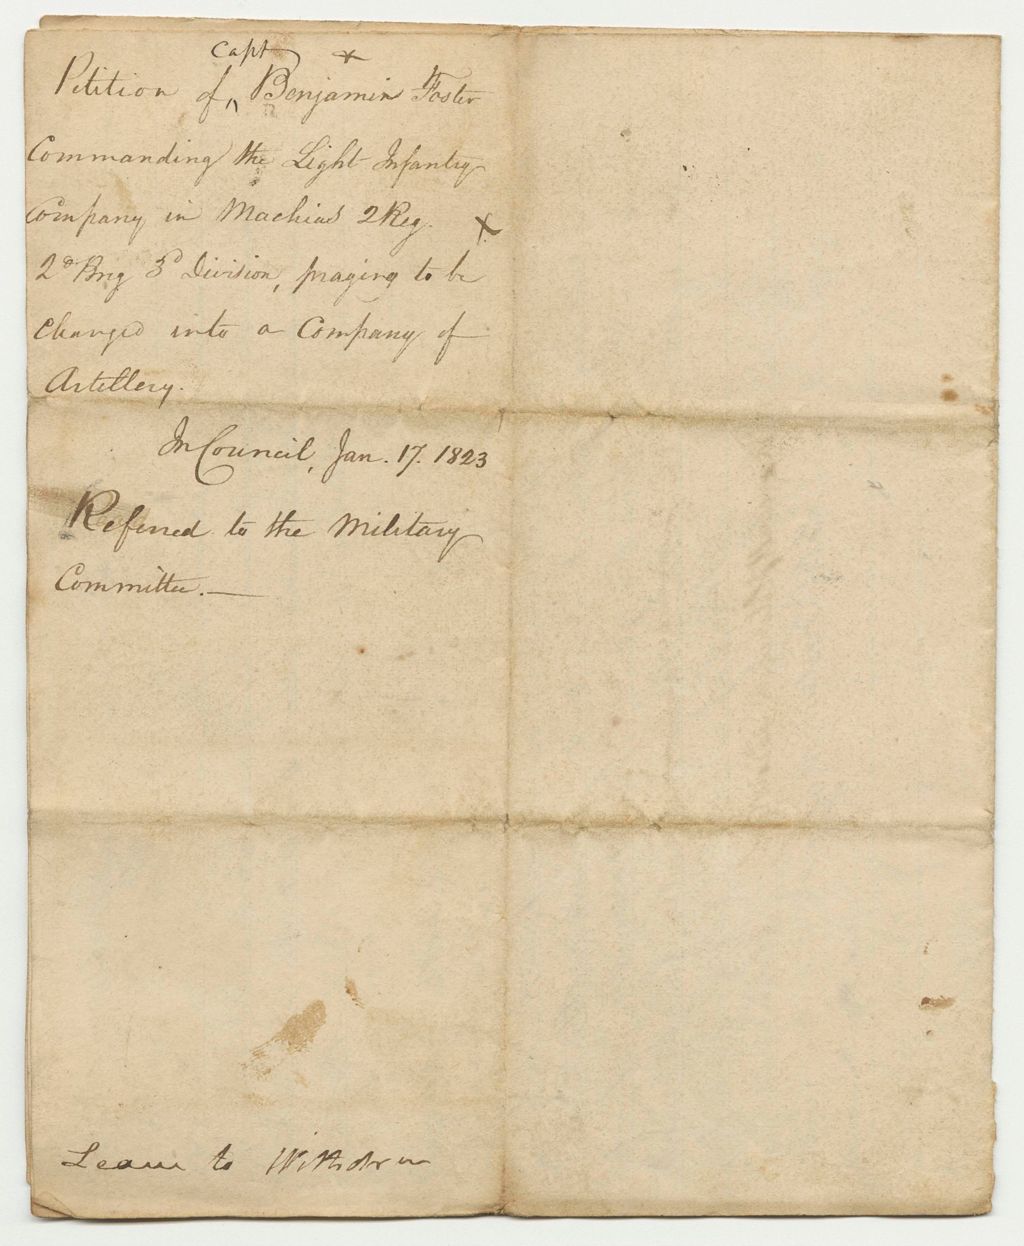 Petition of, ^ Capt Benjamin Foster
Commanding the Light Infantry
Company in Machias 2 Reg.
2d Brig 3d Division, praying to be
changed into a Company of
Artillery.
In Council, Jan. 17. 1823
Referred to the Military
Committee. —
Leave to Withdraw